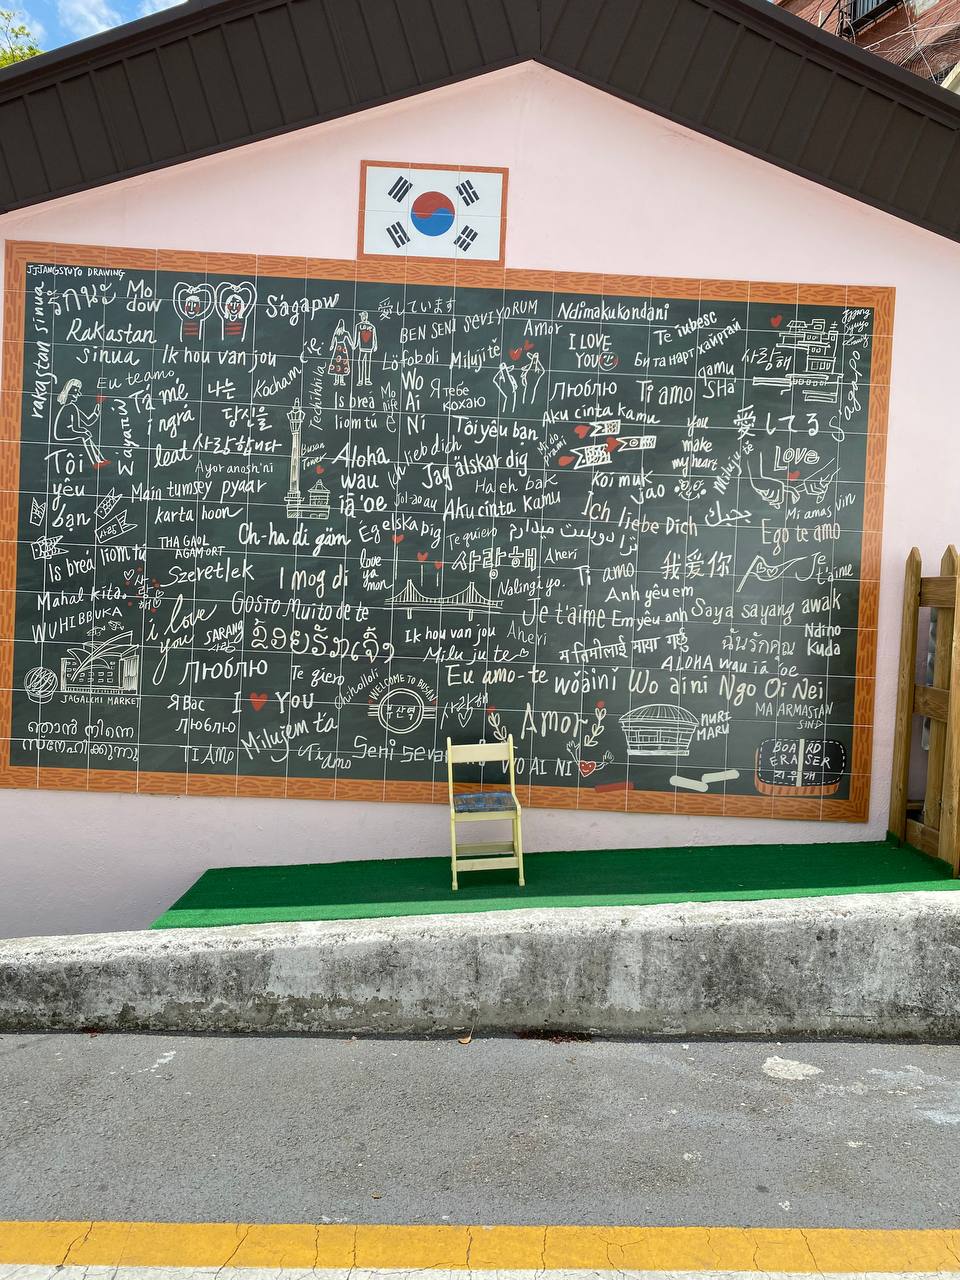 JJJANGSYUYO DRAWING
rakastan sinua
รักนะ
Mo
dow
Ságapw
愛しています
BEN SENI SEVIYORUM
Ndimakukondani
Rakastan
sinua
Ik hou van jou
Amor
I LOVE
YOU
Te iubesc
Би танart хайртай
사랑해
Eu te amo
Tá mé
i ngrá
leat
나는
당신을
사랑합니다
Kocham
Techihhila
Lo fob oli
Miluji tě
Wo
Ai
Ni
Я тебе
кохаю
Люблю
Ti amo
gamu
SHa
Sagapo
Is breá
liom tú
Mo
life
Aku cinta kamu
You
make
my heart
愛してる
Love
Tôi
yêu
bạn
Ayor anosh'ni
Busan
Tower
Aloha
wau
iā 'oe
Ich lieb dich
Tôi yêu bạn
Jag älskar dig
Ha eh bak
Miluju te
Main tumsey pyaar
karta hoon
Jol-ao au
Aku cinta Kamu
Koi muk
Jao
بحبك
Mi amas vin
사랑
THA GAOL
AGAM ORT
Ch-ha di gäm
Ég elska þig
Te quiero
ترا دوست میدارم
Ich liebe Dich
Ego te amo
Is breá liom tú
Szeretlek
I mog di
love
ya
mon
사랑해
Aheri
Nalingi yo.
Ti amo
我爱你
Je
t'aime
Mahal kita.
WUHIBBUKA
i love
you
SARANG
GOSTO Muito de te
Je t'aime
Anh yêu em
Em yêu anh
Saya sayang awak
ຂ້ອຍຮັກເຈົ້າ
Ik hou van jou
Aheri
Milu ju te
म तिमीलाई माया गर्छु
ฉันรักคุณ
Ndino
Kuda
ALOHA wau iā 'oe
JAGALCHI MARKET
Люблю
Te qiero
Chiholloli
WELCOME TO BUSAN
부산역
사랑해
Eu amo-te
wǒ ài nǐ
Wo ai ni
Ngo Oi Nei
MA ARMASTAN
SIND
Я Вас
Люблю
I YOU
Amor
NURI
MARU
ഞാൻ നിന്നെ
സ്നേഹിക്കുന്നു
TI AMO
Milujem ťa
Ti amo
Seni seve
WO AI NI
BOARD
ERASER
지우개